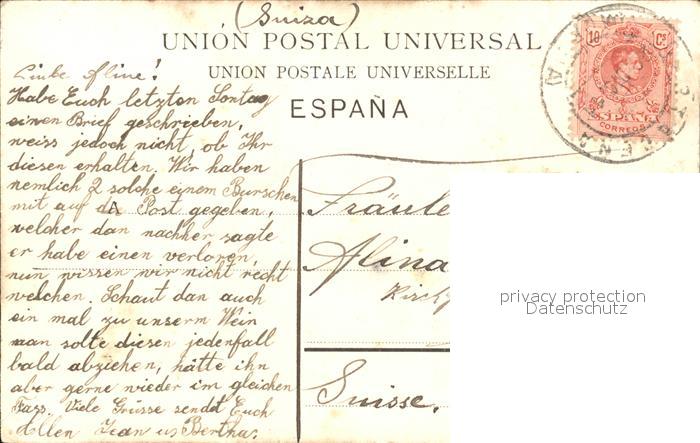 (Suiza)
UNIÓN POSTAL UNIVERSAL
UNION POSTALE UNIVERSELLE
ESPAÑA
10 Cs
ESPAÑA
CORREOS
Liebe Aline!
Habe Euch letzten Sontag
einen Brief geschrieben,
weiss jedoch nicht, ob Ihr
diesen erhalten. Wir haben
nemlich 2 solche einem Burschen
mit auf die Post gegeben,
welcher dan nachher sagte
er habe einen verloren,
nun wissen wir nicht recht
welchen. Schaut dan auch
ein mal zu unserm Wein
man solte diesen jedenfall
bald abziehen, hätte ihn
aber gerne wieder im gleichen
Fass. Viele Grüsse sendet Euch
Allen Jean u Bertha.
Fräule
Alina
Kirch
Suisse.
privacy protection
Datenschutz